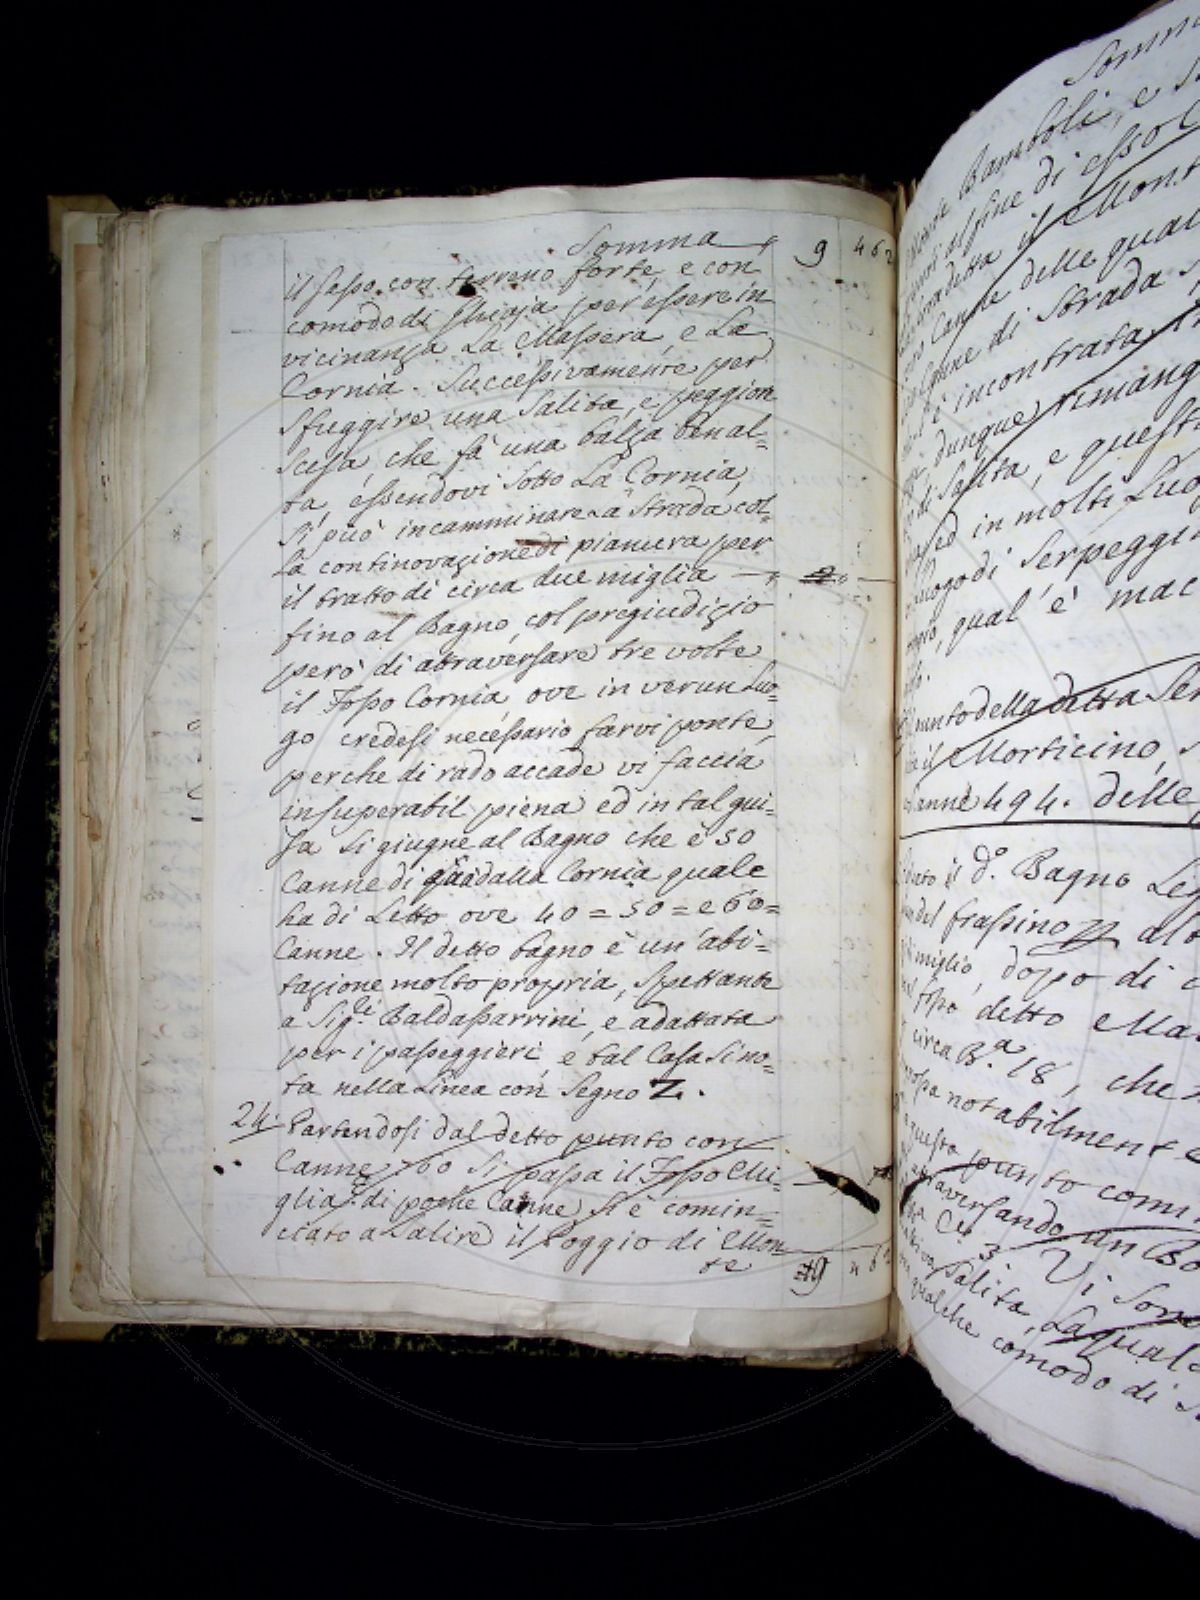 Somma 9 462
il sasso con terreno forte, e con
comodo di Ghiaja per essere in
vicinanza La Massera, e La
Cornia. Successivamente per
sfuggire una Salita, e peggior
scesa che fà una balza ben al=
ta, essendovi sotto La Cornia,
si può incamminare La Strada col=
la continovazione di pianura per
il tratto di circa due miglia
fino al Bagno, col pregiudizio
però di attraversare tre volte
il Fosso Cornia ove in verun Luo=
go credesi necessario farvi ponte,
perche di rado accade vi faccia
insuperabil piena ed in tal gui=
sa si giugne al Bagno che è 50
Canne di quà dalla Cornia quale
ha di Letto ove 40 = 50 = e 60=
Canne. Il detto bagno è un'abi=
tazione molto propria, Spettante
a Sig.ri Baldassarrini, e adattata
per i passeggieri, e tal Casa si no=
ta nella Linea con Segno Z.
24. Partendosi dal detto punto con
Canne 700 si passa il Fosso Mi=
glia.. di poche Canne si è comin=
ciato a Salire il Poggio di Mon=
te 9 46
Somma
Monte Bamboli, e
al fine di esso
detta il Mont
Canne delle qua
di Strada
è incontrata
dunque rimang
di Salita, e quest
ed in molti Luo
Luogo di Serpeggi
qual'è mac
punto della detta
il Morticino,
Canne 494. delle
il d.o Bagno
del frassino
miglio, dopo di
detto
circa B.a 18, che
notabilment
questo punto com
attraversando un
Salita, La quale
qualche comodo di